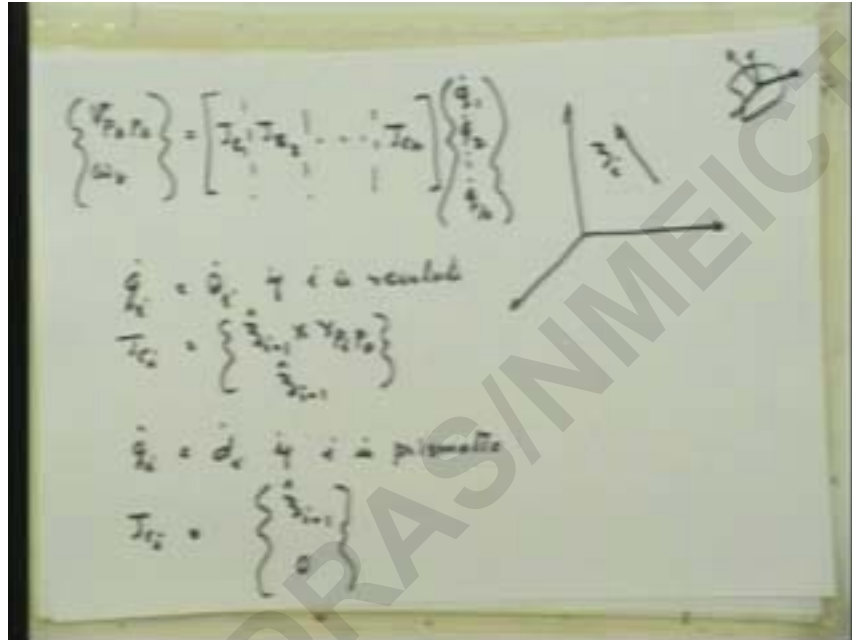 { V_{P_n P_0} ω_n } = [ J_{c_1} ⋮ J_{c_2} ⋮ . . . ⋮ J_{c_n} ] { q̇_1 q̇_2 ⋮ q̇_n }
q̇_i = θ̇_i if i is revolute
J_{c_i} = { ẑ_{i-1} × r_{P_i P_0} ẑ_{i-1} }
q̇_i = ḋ_i if i is prismatic
J_{c_i} = { ẑ_{i-1} 0 }
RAS/NMEICT